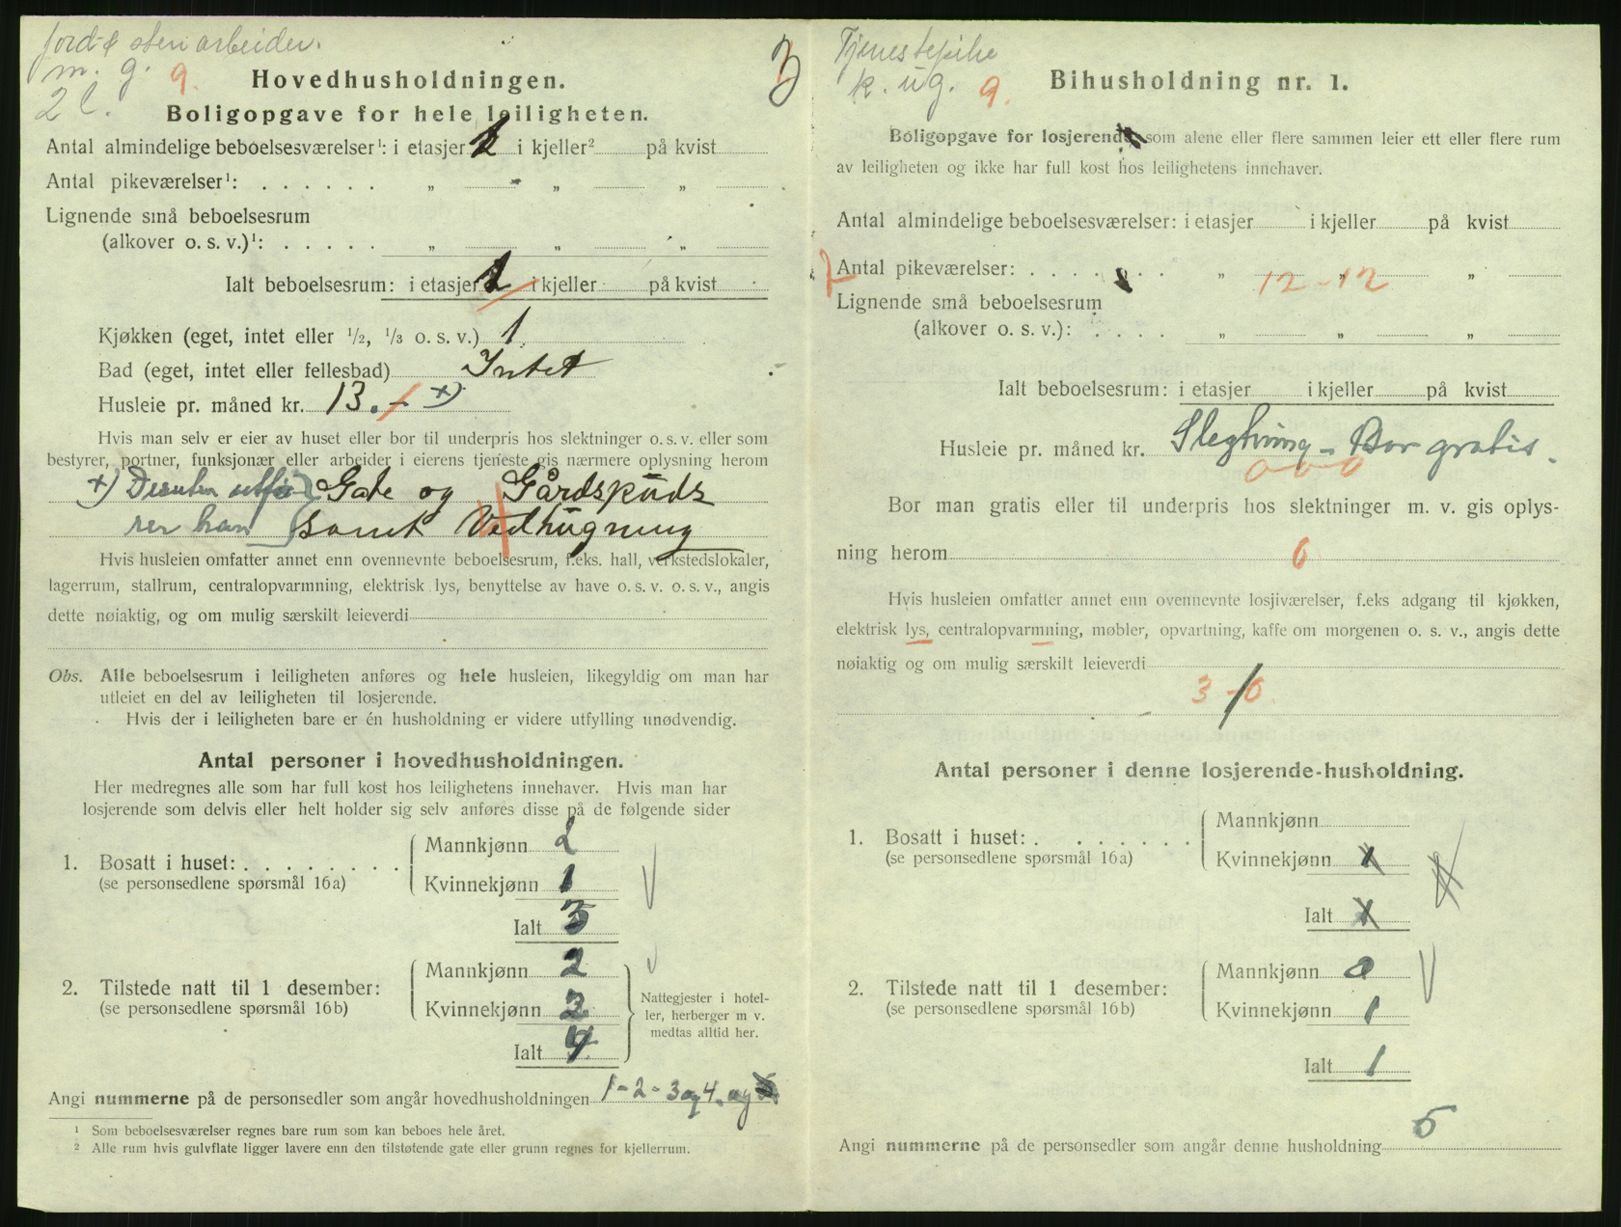 jord & sten arbeider.
m. g. 9.
2 l.
3
Hovedhusholdningen.
Boligopgave for hele leiligheten.
Antal almindelige beboelsesværelser¹: i etasjer 1 i kjeller² på kvist
Antal pikeværelser¹: . . . . . . „ „ „
Lignende små beboelsesrum
(alkover o. s. v.)¹: . . . . . „ „ „
Ialt beboelsesrum: i etasjer 1 i kjeller på kvist
Kjøkken (eget, intet eller ½, ⅓ o. s. v.) 1
Bad (eget, intet eller fellesbad) Intet
Husleie pr. måned kr. 13.- +)
Hvis man selv er eier av huset eller bor til underpris hos slektninger o. s. v. eller som
bestyrer, portner, funksjonær eller arbeider i eierens tjeneste gis nærmere oplysning herom
+) Desuten utfø- Gate og Gårdspuds
rer han samt Vedhugning
Hvis husleien omfatter annet enn ovennevnte beboelsesrum, f.eks. hall, verkstedslokaler,
lagerrum, stallrum, centralopvarmning, elektrisk lys, benyttelse av have o. s. v. o. s. v., angis
dette nøiaktig, og om mulig særskilt leieverdi
Obs. Alle beboelsesrum i leiligheten anføres og hele husleien, likegyldig om man har
utleiet en del av leiligheten til losjerende.
Hvis der i leiligheten bare er én husholdning er videre utfylling unødvendig.
Antal personer i hovedhusholdningen.
Her medregnes alle som har full kost hos leilighetens innehaver. Hvis man har
losjerende som delvis eller helt holder sig selv anføres disse på de følgende sider
1. Bosatt i huset: . . . . . . . .
(se personsedlene spørsmål 16a)
Mannkjønn 2
Kvinnekjønn 1
Ialt 3
2. Tilstede natt til 1 desember:
(se personsedlene spørsmål 16b)
Mannkjønn 2
Kvinnekjønn 2
Ialt 4
Nattegjester i hotel-
ler, herberger m v.
medtas alltid her.
Angi nummerne på de personsedler som angår hovedhusholdningen 1-2-3 og 4. og 5
¹ Som beboelsesværelser regnes bare rum som kan beboes hele året.
² Alle rum hvis gulvflate ligger lavere enn den tilstøtende gate eller grunn regnes for kjellerrum.
Tjenestepike
k. ug. 9.
Bihusholdning nr. 1.
Boligopgave for losjerende som alene eller flere sammen leier ett eller flere rum
av leiligheten og ikke har full kost hos leilighetens innehaver.
Antal almindelige beboelsesværelser: i etasjer i kjeller på kvist
Antal pikeværelser: . . . . . . . „ „ „
12-12
Lignende små beboelsesrum
(alkover o. s. v.): . . . . „ „ „
Ialt beboelsesrum: i etasjer i kjeller på kvist
Husleie pr. måned kr. Slegtning - Bor gratis.
0-0-0
Bor man gratis eller til underpris hos slektninger m. v. gis oplys-
ning herom 6
Hvis husleien omfatter annet enn ovennevnte losjiværelser, f.eks adgang til kjøkken,
elektrisk lys, centralopvarmning, møbler, opvartning, kaffe om morgenen o. s. v., angis dette
nøiaktig og om mulig særskilt leieverdi
3-0
Antal personer i denne losjerende-husholdning.
1. Bosatt i huset: . . . . . . .
(se personsedlene spørsmål 16a)
Mannkjønn
Kvinnekjønn 1
Ialt 1
2. Tilstede natt til 1 desember:
(se personsedlene spørsmål 16b)
Mannkjønn 0
Kvinnekjønn 1
Ialt 1
Angi nummerne på de personsedler som angår denne husholdning 5